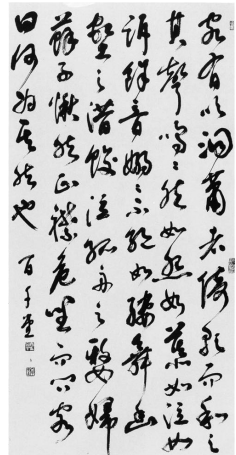 客有吹洞簫者倚歌而和之
其聲嗚嗚然如怨如慕如泣如
訴餘音嫋嫋不絕如縷舞幽
壑之潛蛟泣孤舟之嫠婦
蘇子愀然正襟危坐而問客
曰何為其然也 百千堂